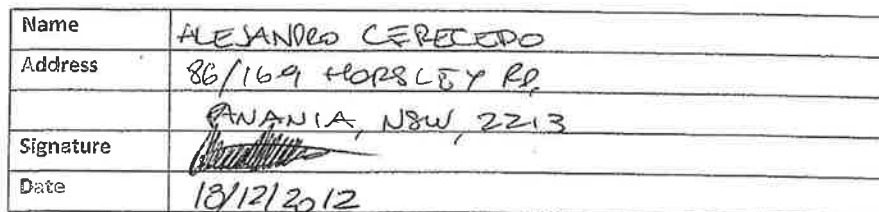 Name ALEJANDRO CERECEDO
Address 86/169 HORSLEY RD,
PANANIA, NSW, 2213
Signature
Date 18/12/2012